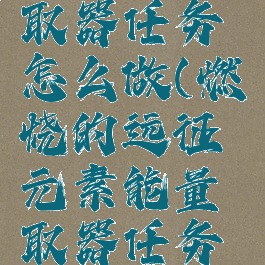 取器任务
怎么做(燃
烧的远征
元素能量
取器任务